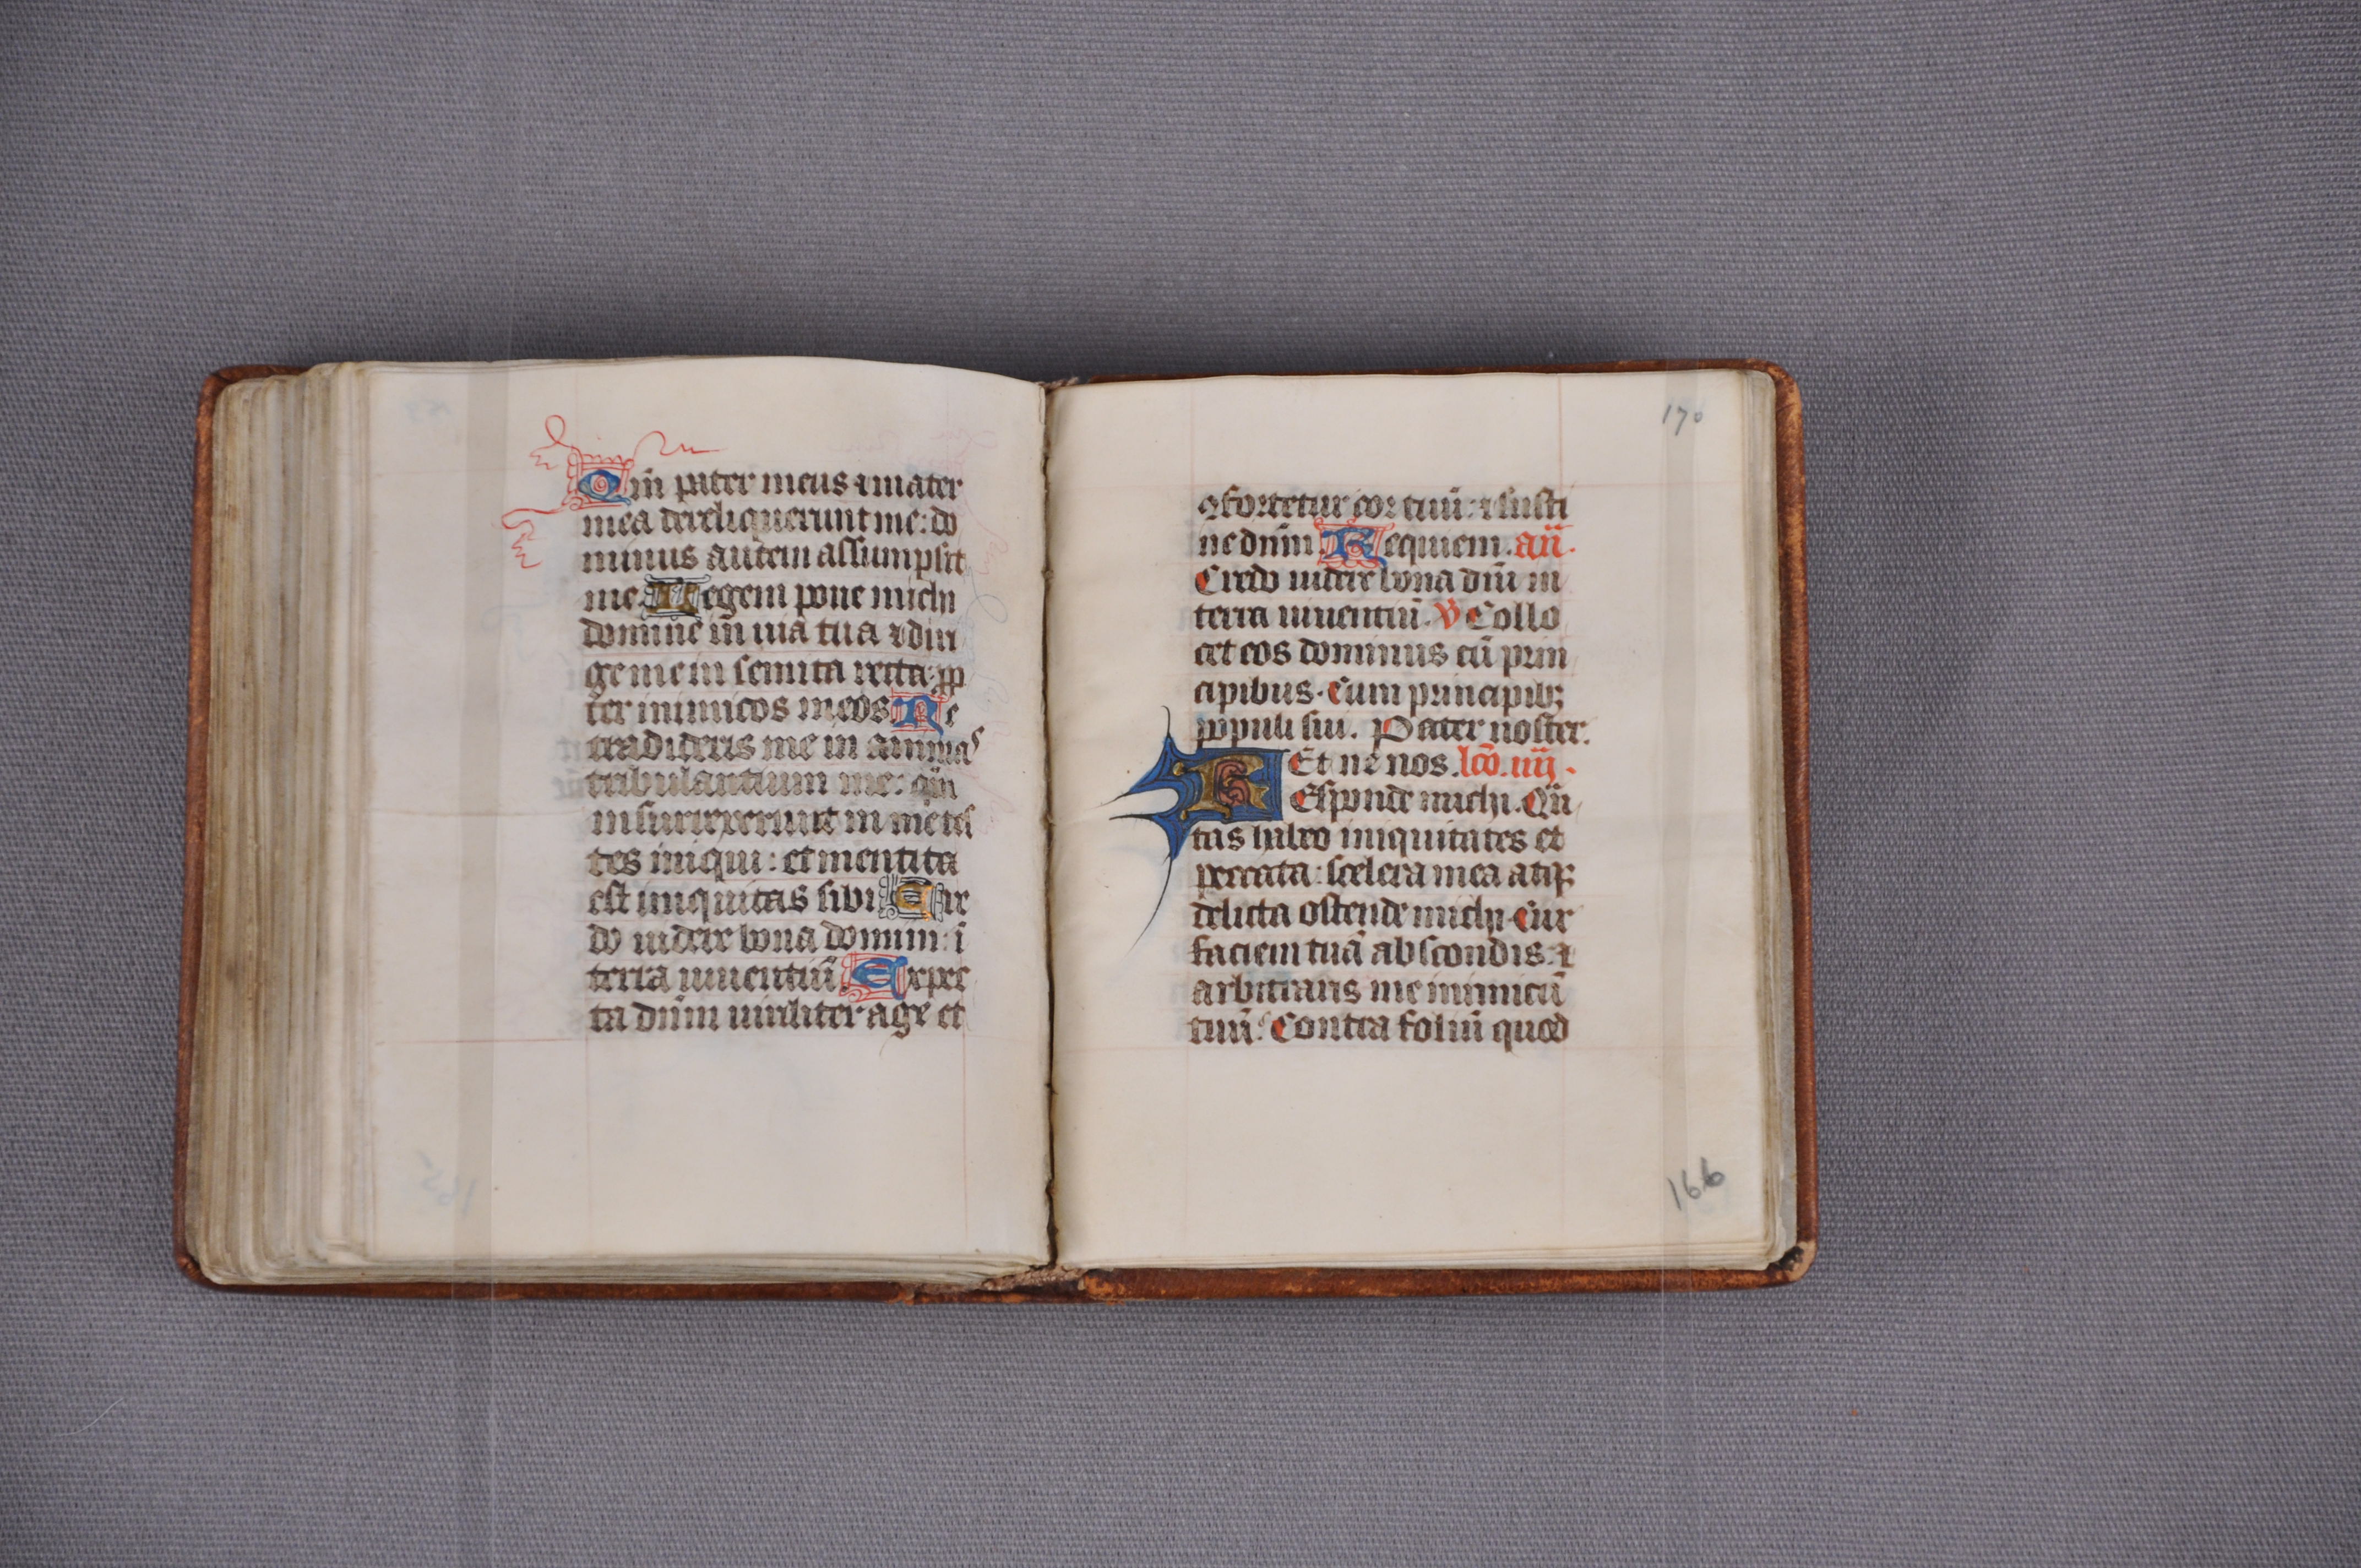 Qm̄ pater meus ⁊ mater
mea dereliquerunt me: do
minus autem assumpsit
me. Legem pone michi
domine in uia tua ⁊ diri
ge me in semita recta: pp
ter inimicos meos. Ne
tradideris me in animas
tribulantium me: qm̄
insurrexerunt in me tes
tes iniqui: et mentita
est iniquitas sibi. Cre
do uidere bona domini: ī
terra uiuentiū. Expec
ta dn̄m uiriliter age et
170
ꝯfortetur cor tuū: ⁊ susti
ne dn̄m. Requiem. aū.
Credo uidere bona dn̄i in
terra uiuentiū. V Collo
cet eos dominus cū prin
cipibus. Cum principibꝫ
populi sui. Pater noster.
Et ne nos. lc̄o. iiij.
Responde michi. Qn̄
tas habeo iniquitates et
peccata: scelera mea atqꝫ
delicta ostende michi. Cur
faciem tuā abscondis: ⁊
arbitraris me inimicū
tuū. Contra foliū quod
166
165